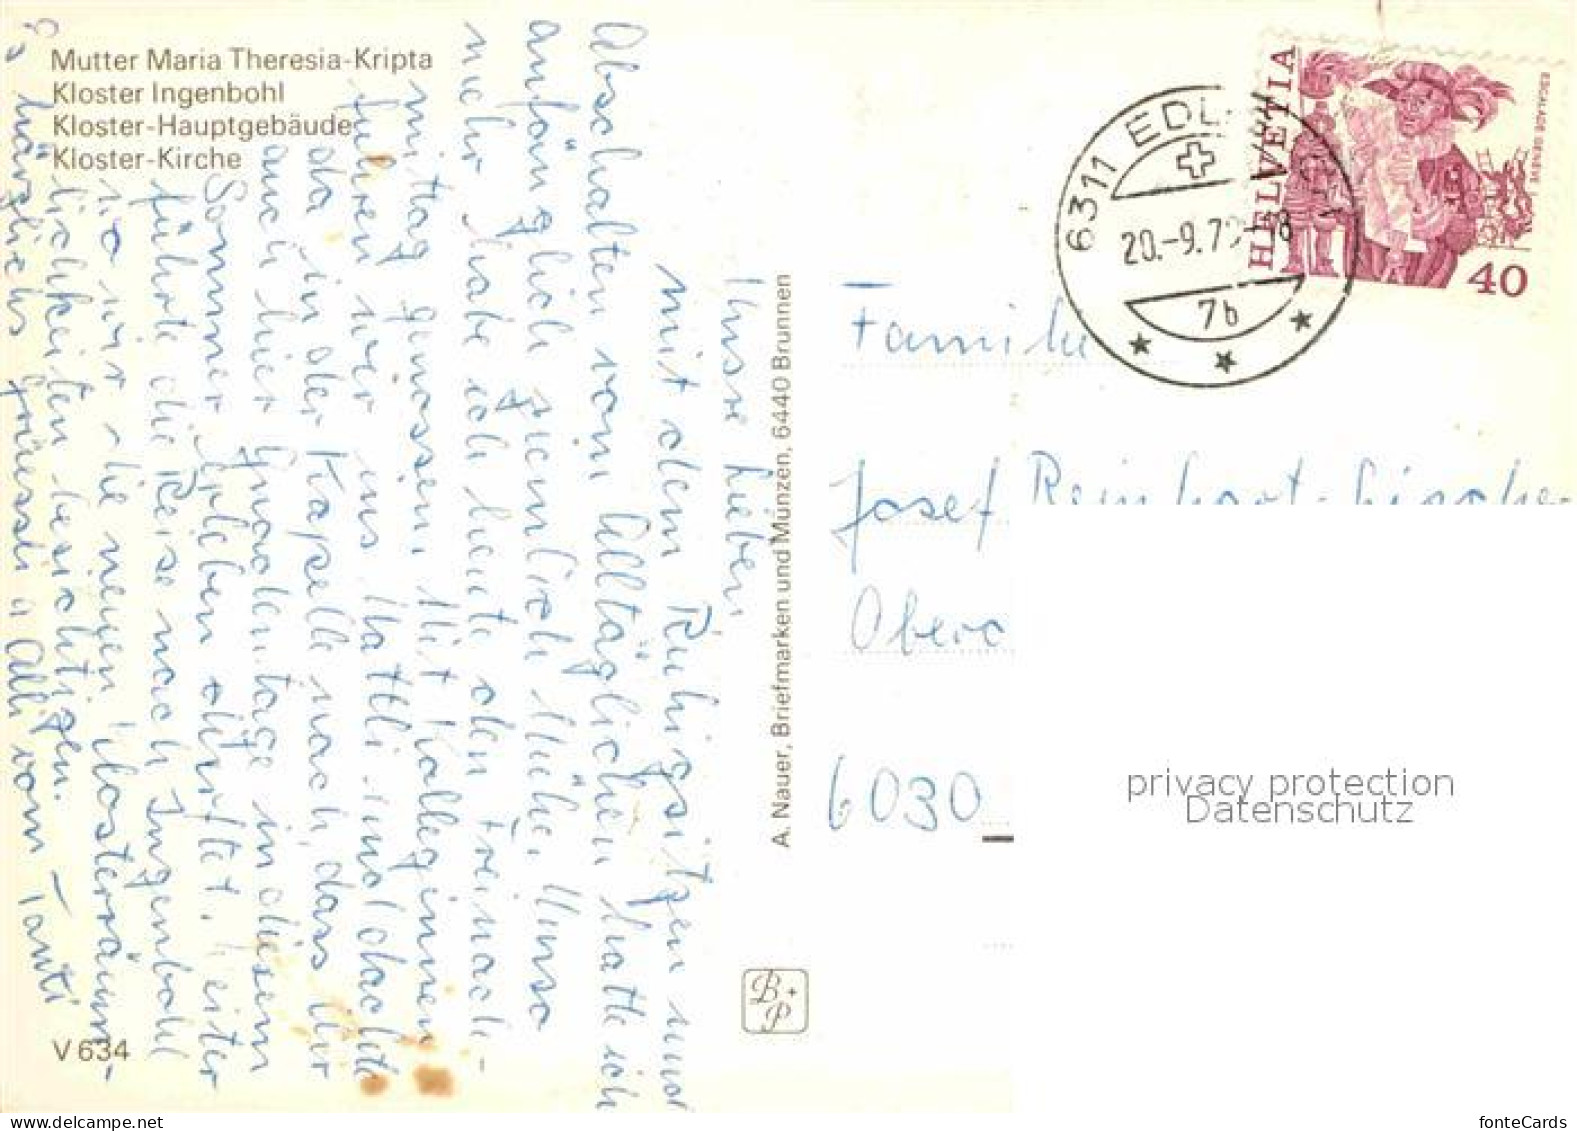 Mutter Maria Theresia-Kripta
Kloster Ingenbohl
Kloster-Hauptgebäude
Kloster-Kirche
Unsre Lieben
mit dem Ruhigsitzen und
Abschalten vom Alltäglichen hatte ich
anfänglich ziemlich Mühe. Umso
mehr habe ich heute den freinach-
mittag genossen. Mit Kolleginnen
fuhren wir ins und dachte
da in der Kapelle nach, dass der
auch hier Gnadentage in diesem
Sommer erleben dürfte. Weiter
führte die Reise nach Ingenbohl
wo wir die neuen Klosterräum-
lichkeiten besichtigen.
härzlichs grüessli a Alli vom Tanti
V 634
A. Nauer, Briefmarken und Münzen, 6440 Brunnen
B+P
HELVETIA
ESCALADE GENÈVE
40
6311 EDL
20.-9.7 -18
7b
Familie
Josef Reinhart-
Ober
6030
privacy protection
Datenschutz
www.delcampe.net
fonteCards